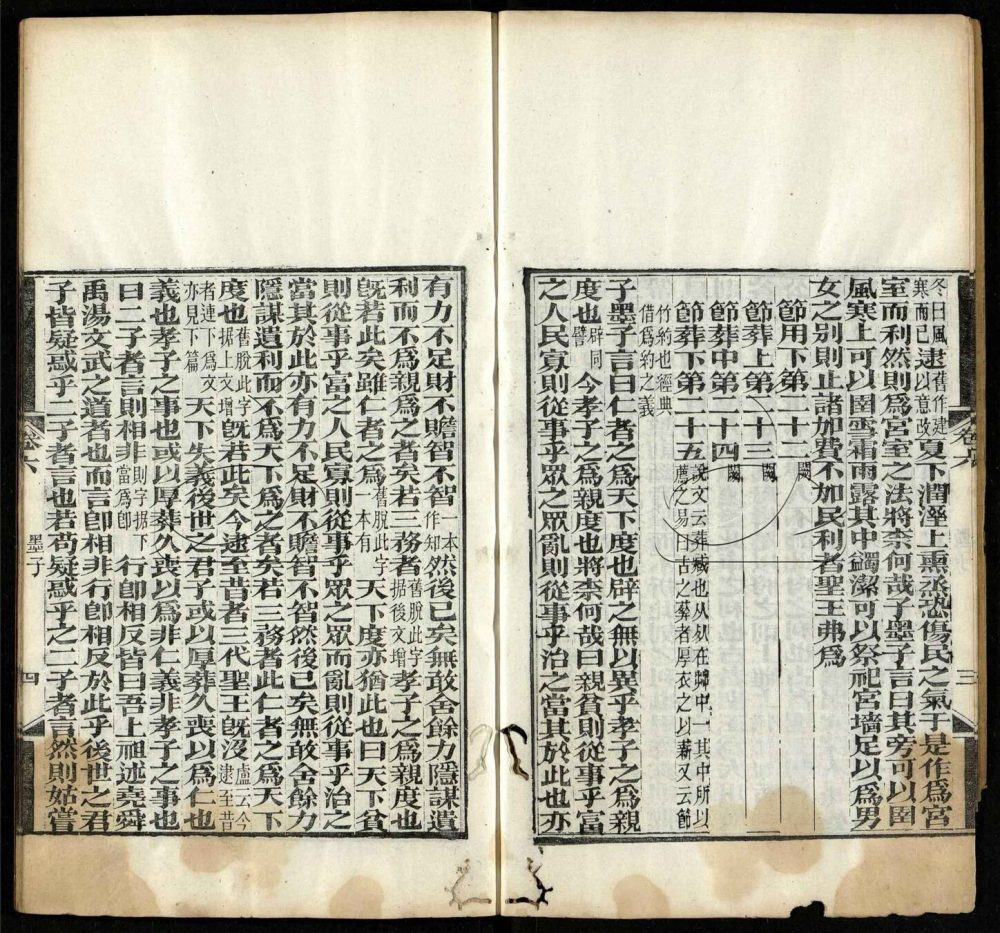 冬日風寒而已逮舊作建以意改夏下潤溼上熏烝恐傷民之氣于是作爲宮
室而利然則爲宮室之法將柰何哉子墨子言曰其旁可以圉
風寒上可以圉雪霜雨露其中蠲潔可以祭祀宮墻足以爲男
女之別則止諸加費不加民利者聖王弗爲
節用下第二十二闕
節葬上第二十三闕
節葬中第二十四闕
節葬下第二十五說文云葬藏也从死在茻中一其中所以薦之易曰古之葬者厚衣之以薪又云節
竹約也經典借爲約之義
子墨子言曰仁者之爲天下度也辟之無以異乎孝子之爲親
度也辟同譬今孝子之爲親度也將柰何哉曰親貧則從事乎富
之人民寡則從事乎眾之眾亂則從事乎治之當其於此也亦
卷六
三
有力不足財不贍智不智本作知然後已矣無敢舍餘力隱謀遺
利而不爲親爲之者矣若三務者舊脫此字據後文增孝子之爲親度也
旣若此矣雖仁者之爲舊脫此字一本有天下度亦猶此也曰天下貧
則從事乎富之人民寡則從事乎眾之眾而亂則從事乎治之
當其於此亦有力不足財不贍智不智然後已矣無敢舍餘力
隱謀遺利而不爲天下爲之者矣若三務者此仁者之爲天下
度也舊脫此字据上文增旣若此矣今逮至昔者三代聖王旣沒盧云今逮至昔
者連下爲文亦見下篇天下失義後世之君子或以厚葬久喪以爲仁也
義也孝子之事也或以厚葬久喪以爲非仁義非孝子之事也
曰二子者言則相非則字据下當爲卽行卽相反皆曰吾上祖述堯舜
禹湯文武之道者也而言卽相非行卽相反於此乎後世之君
子皆疑惑乎二子者言也若苟疑惑乎之二子者言然則姑嘗
卷六
墨子
四